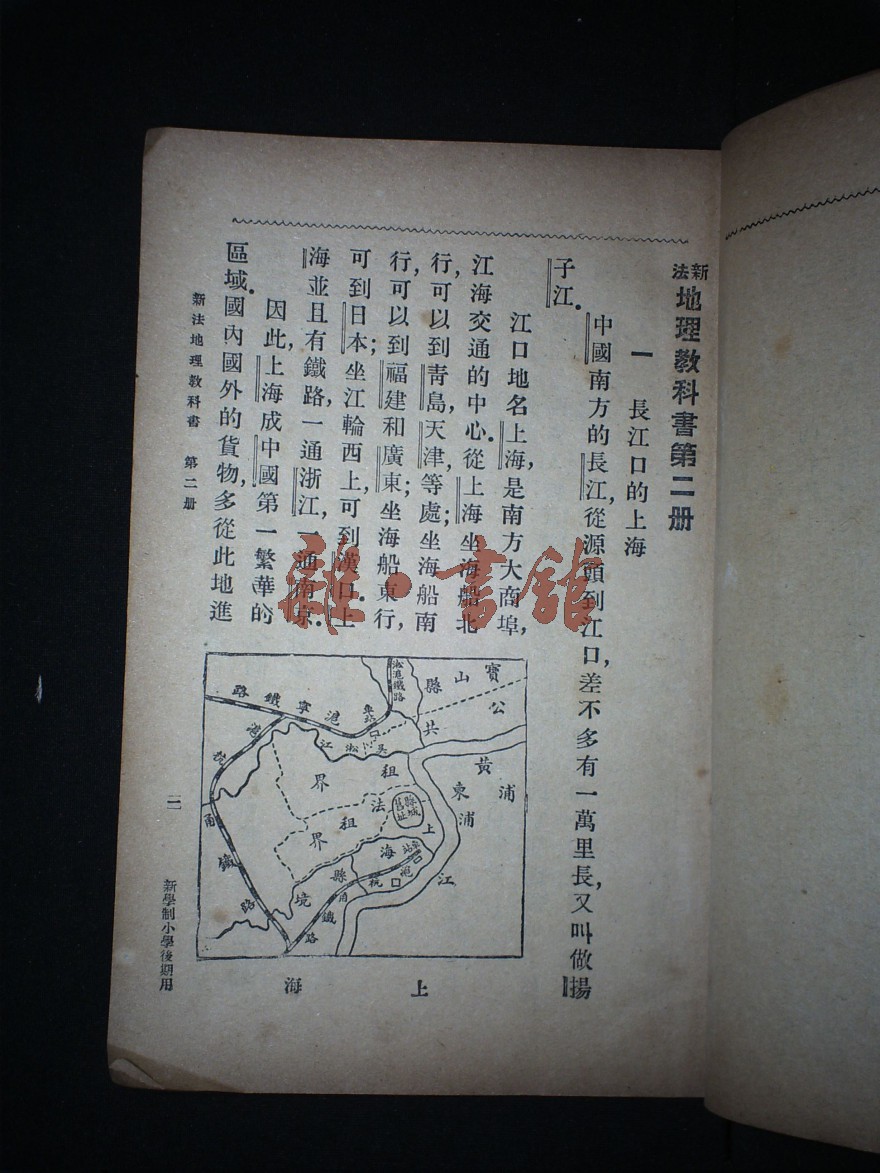 新法地理教科書第二册
一 長江口的上海
中國南方的長江,從源頭到江口,差不多有一萬里長,又叫做揚
子江.
江口地名上海,是南方大商埠,
江海交通的中心.從上海坐海船北
行,可以到靑島,天津,等處;坐海船南
行,可以到福建和廣東;坐海船東行,
可到日本;坐江輪西上,可到漢口.上
海並且有鐵路,一通浙江,一通南京.
因此,上海成中國第一繁華的
區域.國內國外的貨物,多從此地進
新法地理敎科書 第二册
一
新學制小學後期用
寶山縣
公共租界
法租界
淞滬鐵路
滬寧鐵路
車站
吳淞江
黃浦江
浦東
縣城舊址
上海縣境
車站
滬杭甬鐵路
滬杭甬鐵路
上海
雜·書館